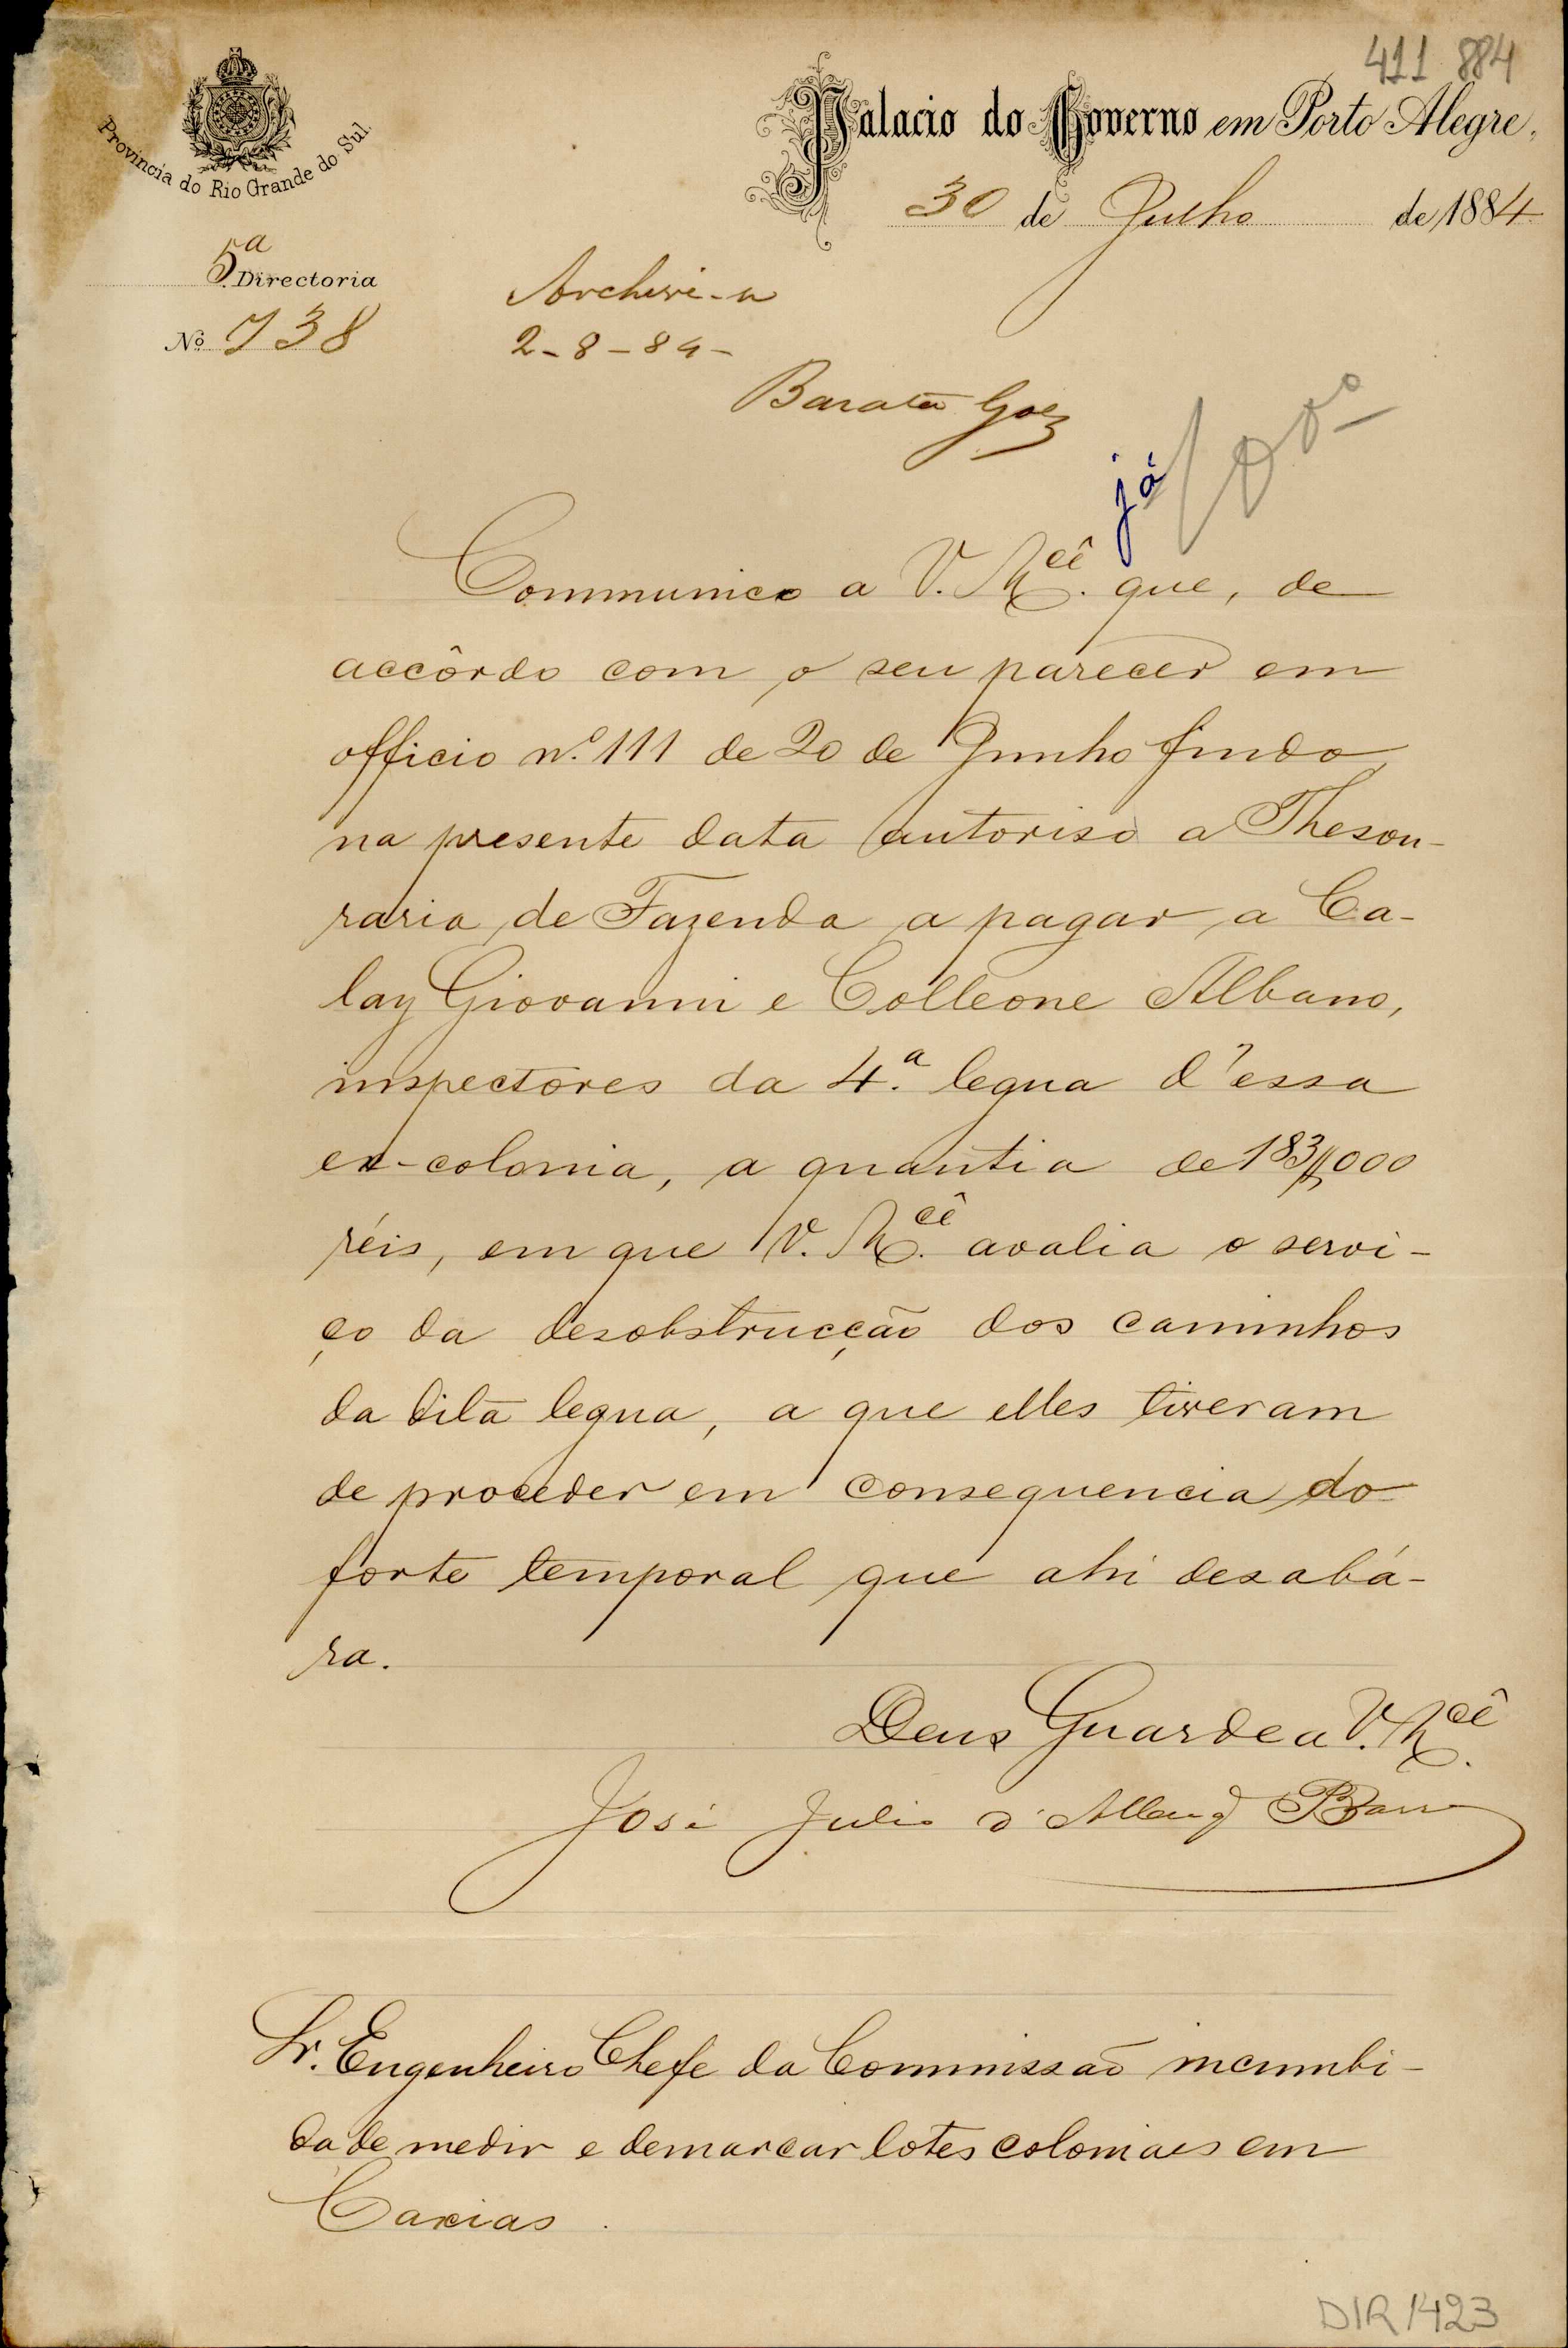 411 884
Provincia do Rio Grande do Sul.
Palacio do Governo em Porto Alegre,
30 de Julho de 1884
5ª Directoria
Nº 738
Archive-se
2-8-84-
Barata Góes
já
Communico a V. Mcê. que, de
accôrdo com o seu parecer em
officio nº. 111 de 20 de Junho findo,
na presente data autoriso a Thesou-
raria de Fazenda a pagar a Ca-
lay Giovanni e Colleone Albano,
inspectores da 4.ª legua d'essa
ex-colonia, a quantia de 183$000
réis, em que V. Mcê. avalia o servi-
ço da desobstrucção dos caminhos
da dita legua, a que elles tiveram
de proceder em consequencia do
forte temporal que ahi desabá-
ra.
Deus Guarde a V. Mcê.
José Julio d'Albuqe Barros
Sr. Engenheiro Chefe da Commissão incumbi-
da de medir e demarcar lotes coloniaes em
Caxias.
DIR 1423